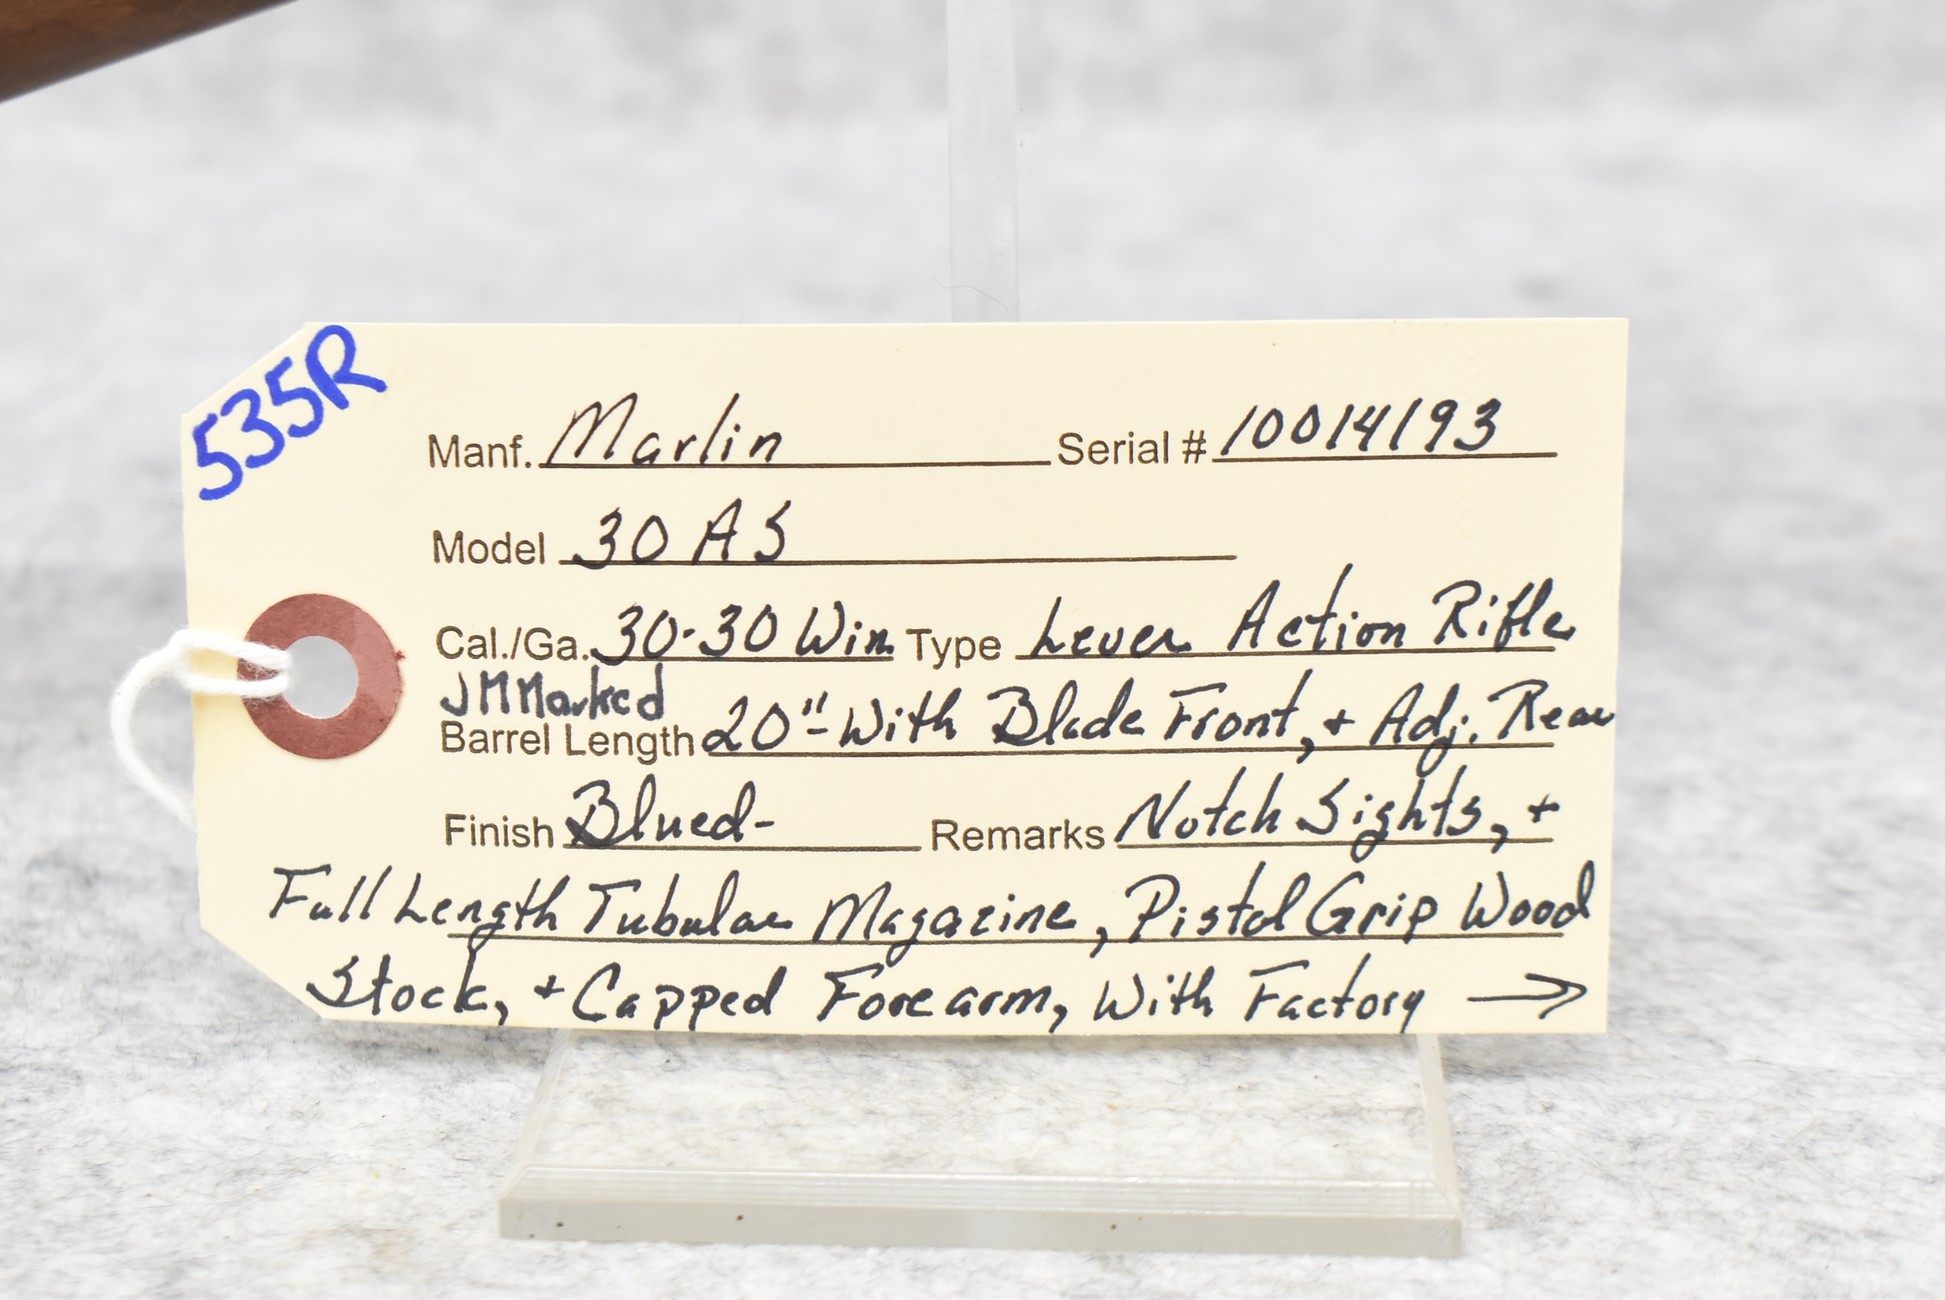 535R
Manf. Marlin Serial # 10014193
Model 30 AS
Cal./Ga. 30-30 Win Type Lever Action Rifle
JM Marked
Barrel Length 20"- With Blade Front, + Adj. Rear
Finish Blued- Remarks Notch Sights, +
Full Length Tubular Magazine, Pistol Grip Wood
Stock, + Capped Forearm, With Factory →